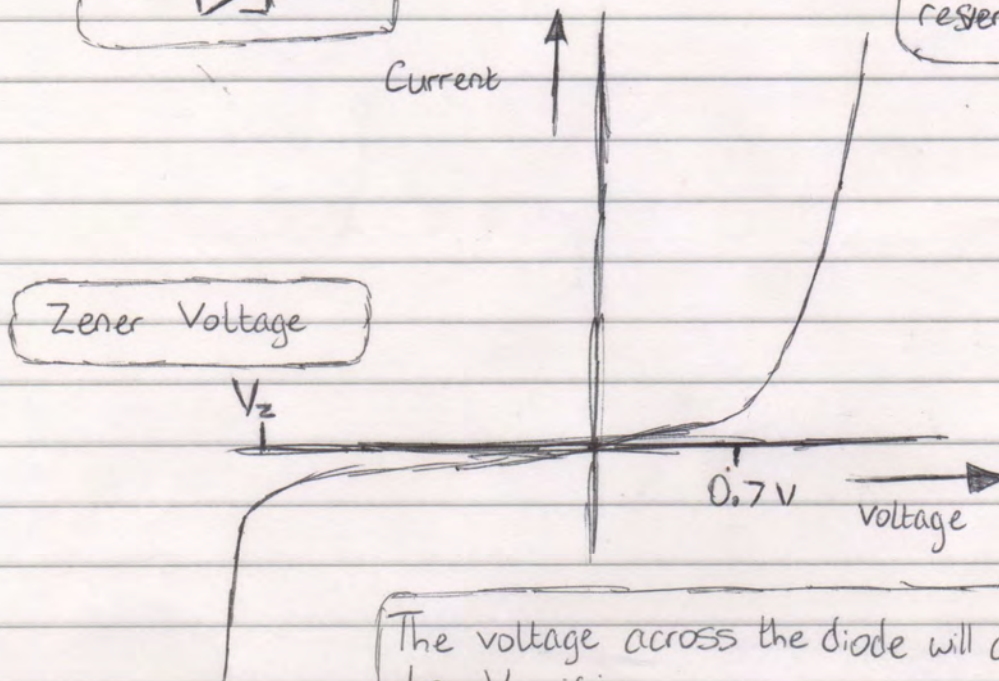 Current
Zener Voltage
Vz
0.7 V
Voltage
The voltage across the diode will